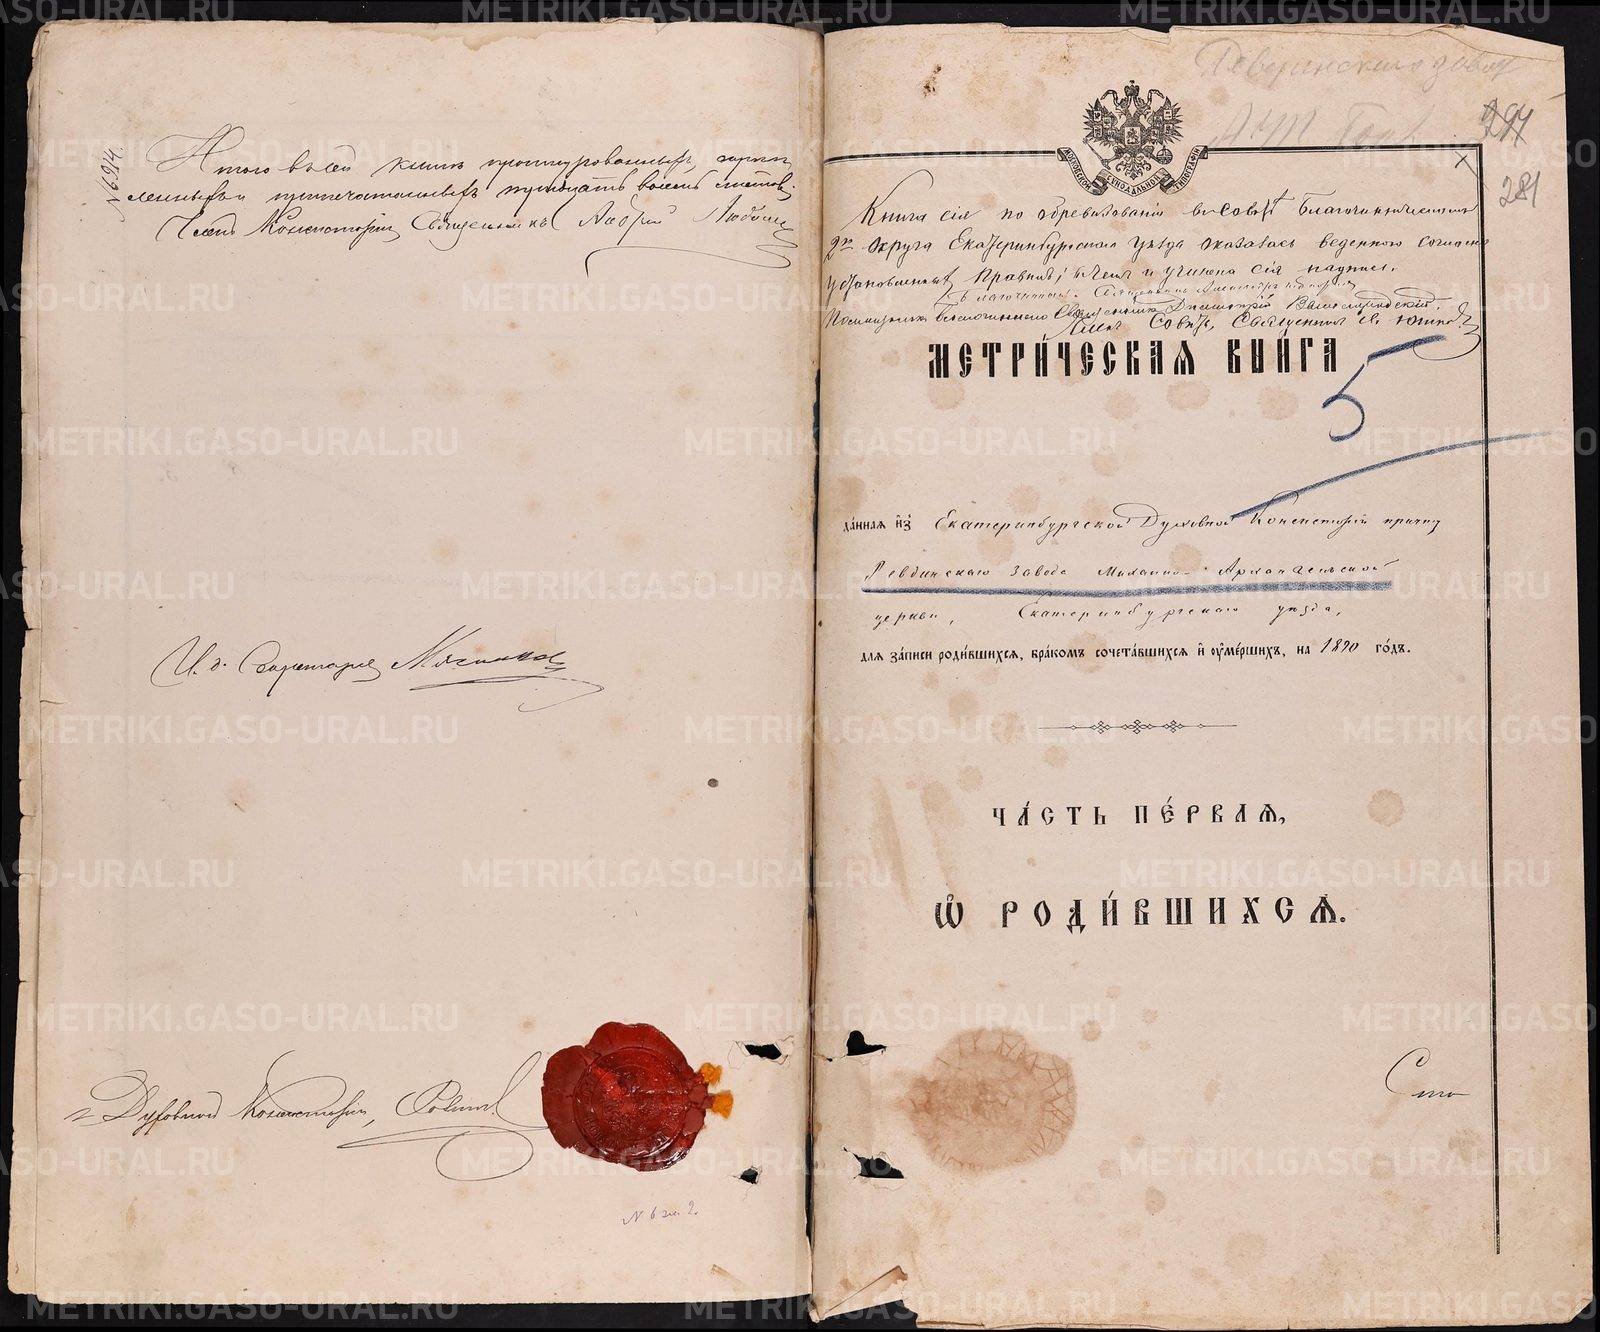 № 694.
Итого въ сей книгѣ прошнурованныхъ, скрѣп
ленныхъ и припечатанныхъ листовъ.
Членъ Консисторіи, Священникъ
И. д. Секретаря
Духовной Консисторіи,
N 6
Ревдинского завод
297
281
МОСКОВСКОЙ СѴНОДАЛЬНОЙ ТИПОГРАФІИ
Книга сія по обревизованіи въ Совѣтѣ Благочинническомъ
2го округа Екатеринбургскаго уѣзда оказалась веденною согласно
установленныхъ правилъ; въ чемъ и учинена сія надпись.
Благочинный, Священникъ
Помощникъ благочиннаго Священникъ Димитрій
Членъ Совѣта, Священникъ
МЕТРИ́ЧЕСКАЯ КНИ́ГА
5
да́нная и҆з̾ Екатеринбургской Духовной Консисторіи причту
Ревдинскаго завода Михаило-Архангельской
церкви, Екатеринбургскаго уѣзда,
для за́писи роди́вшихся, бра́комъ сочета́вшихся и҆ ᲂу҆ме́ршихъ, на 1890 го́дъ.
ЧА́СТЬ ПЕ́РВАЯ,
Ѽ РОДИ́ВШИХСЯ.
Сто
METRIKI.GASO-URAL.RU